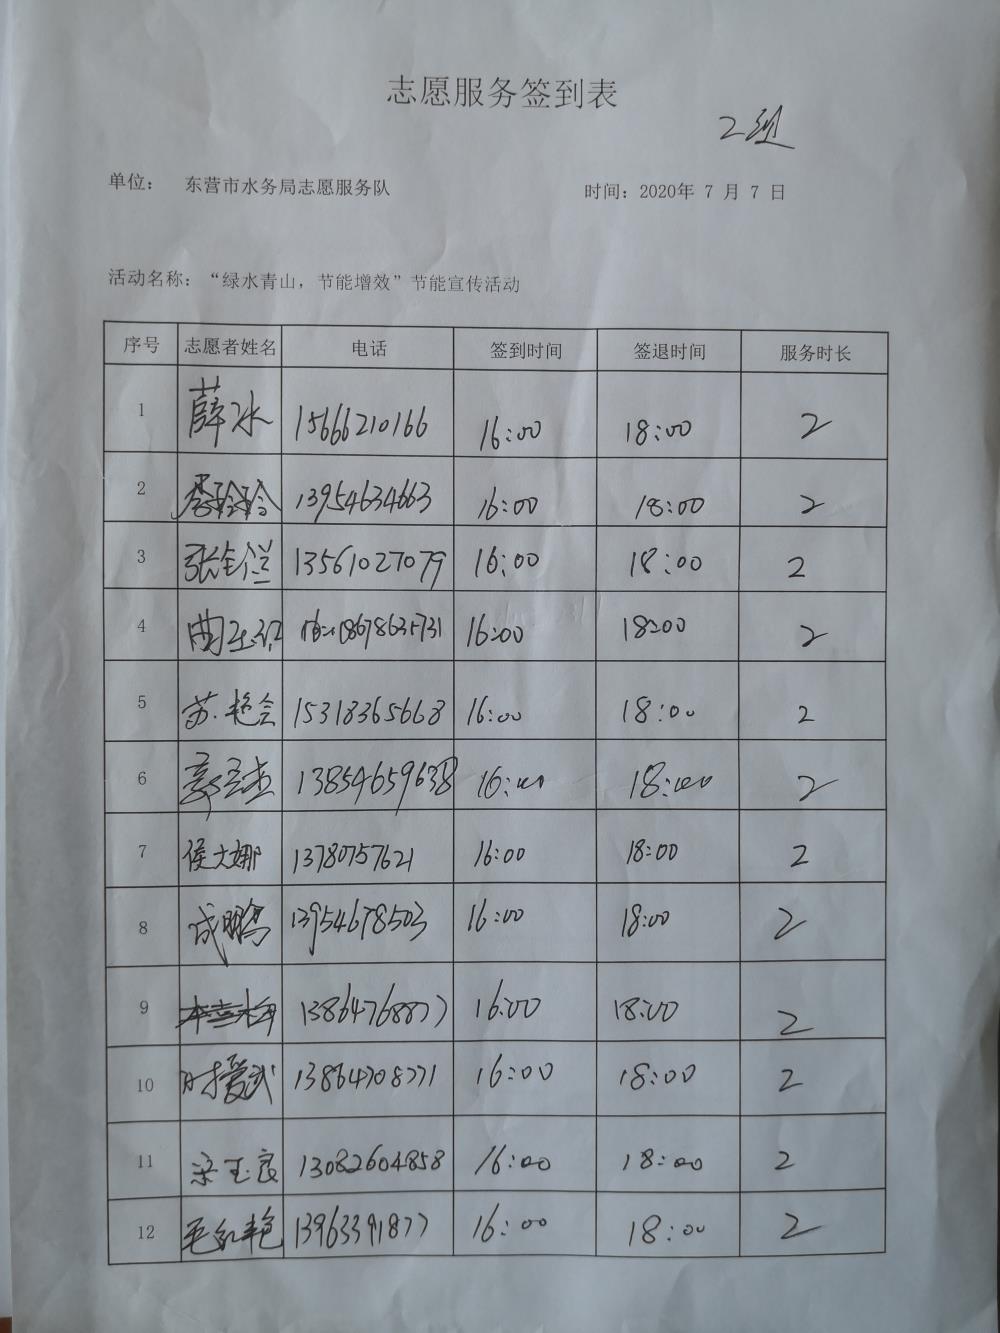 志愿服务签到表
2组
单位： 东营市水务局志愿服务队 时间：2020年 7 月 7 日
活动名称：“绿水青山，节能增效”节能宣传活动
序号 志愿者姓名 电话 签到时间 签退时间 服务时长
1 薛冰 15666210166 16:00 18:00 2
2 李玲玲 13954634663 16:00 18:00 2
3 张全兰 13561027079 16:00 18:00 2
4 18678635731 16:00 18:00 2
5 苏艳会 15318365668 16:00 18:00 2
6 13854659638 16:00 18:00 2
7 侯大娜 13780757621 16:00 18:00 2
8 成鹏 13954678503 16:00 18:00 2
9 13864768877 16:00 18:00 2
10 时爱武 13864708771 16:00 18:00 2
11 梁玉良 13082604858 16:00 18:00 2
12 毛红艳 13963391877 16:00 18:00 2